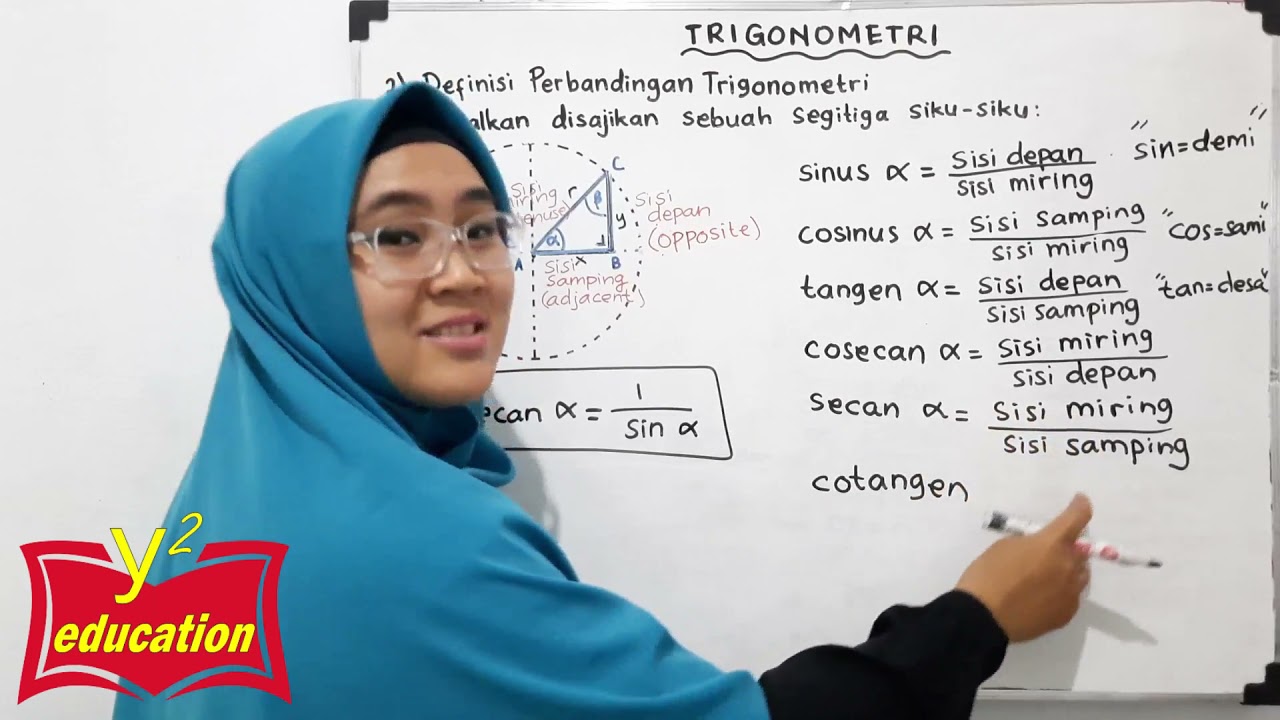 TRIGONOMETRI
Definisi Perbandingan Trigonometri
disajikan sebuah segitiga siku-siku:
C
r
β
y
α
A
x
B
sisi
depan
(opposite)
sisi
miring
sisi
samping
(adjacent)
sinus α = sisi depan / sisi miring
"sin=demi"
cosinus α = sisi samping / sisi miring
"cos=sami"
tangen α = sisi depan / sisi samping
"tan=desa"
cosecan α = sisi miring / sisi depan
secan α = sisi miring / sisi samping
cotangen
α = 1 / sin α
y²
education